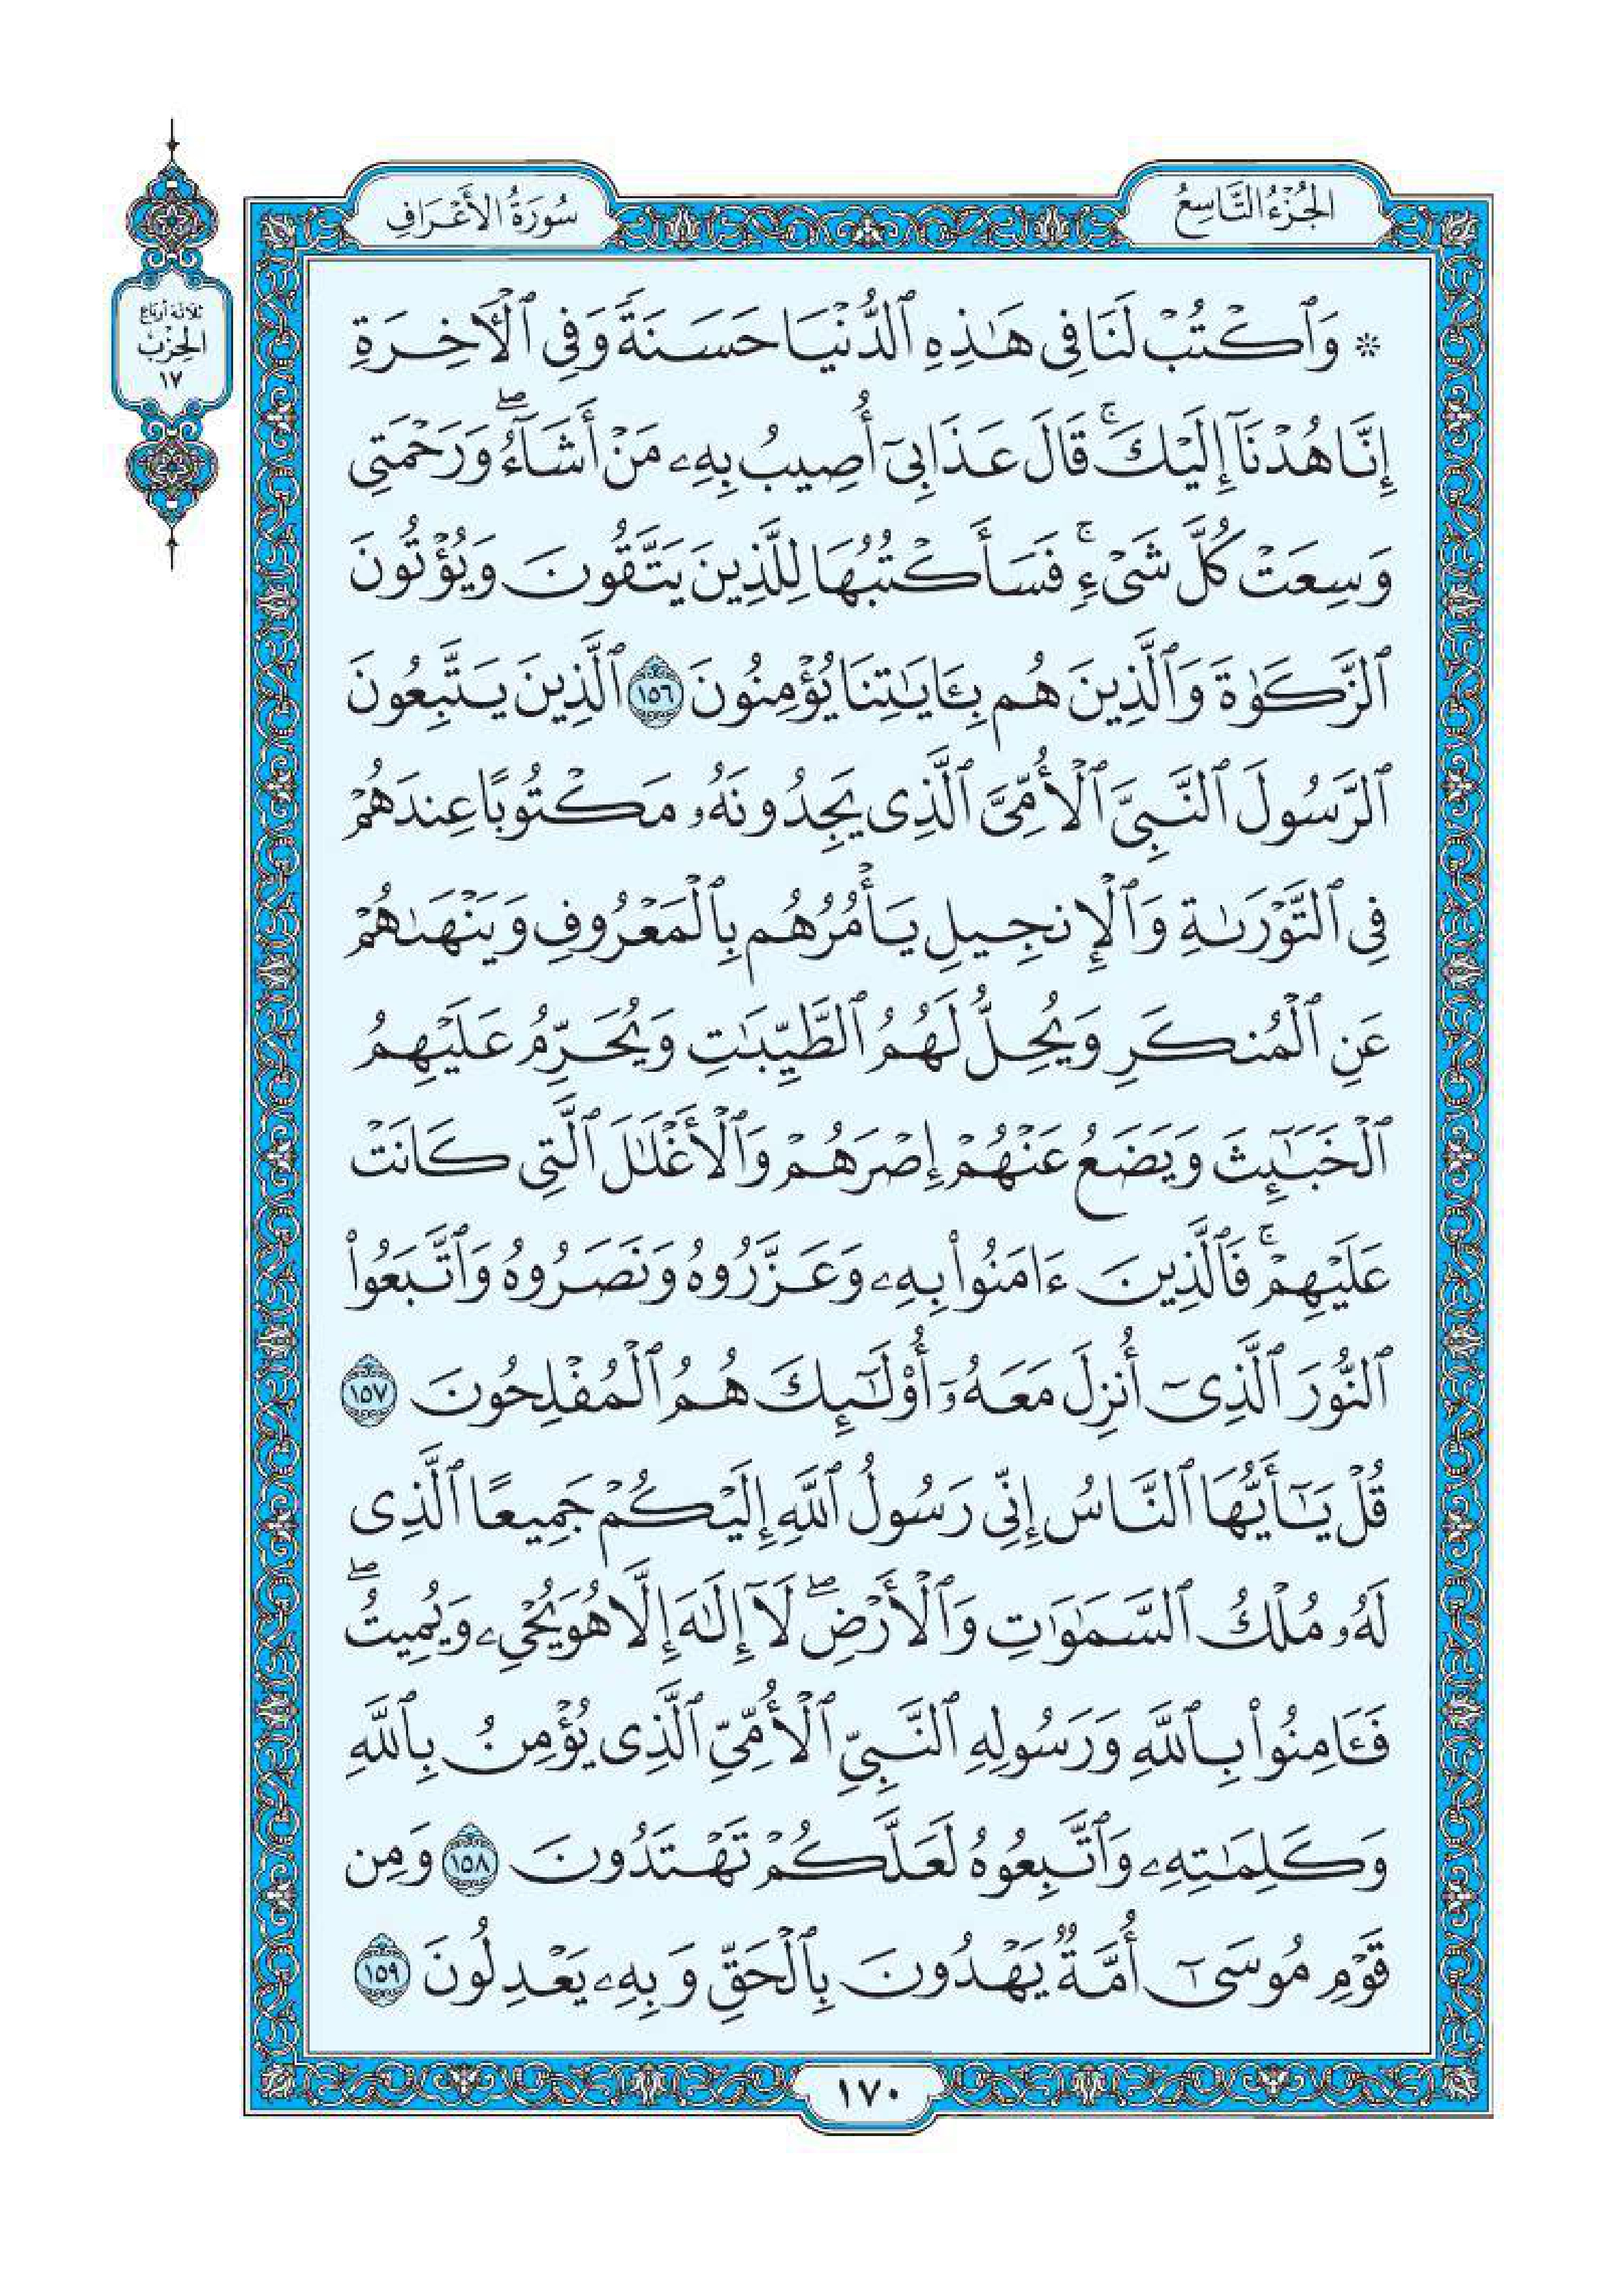 الجُزْءُ التَّاسِعُ
سُورَةُ الأَعْرَافِ
ثلاثة أرباع
الحِزْب
١٧
* وَٱكْتُبْ لَنَا فِى هَـٰذِهِ ٱلدُّنْيَا حَسَنَةً وَفِى ٱلْأَخِرَةِ
إِنَّا هُدْنَآ إِلَيْكَ ۚ قَالَ عَذَابِىٓ أُصِيبُ بِهِۦ مَنْ أَشَآءُ ۖ وَرَحْمَتِى
وَسِعَتْ كُلَّ شَىْءٍ ۚ فَسَأَكْتُبُهَا لِلَّذِينَ يَتَّقُونَ وَيُؤْتُونَ
ٱلزَّكَوٰةَ وَٱلَّذِينَ هُم بِـَٔايَـٰتِنَا يُؤْمِنُونَ ١٥٦ ٱلَّذِينَ يَتَّبِعُونَ
ٱلرَّسُولَ ٱلنَّبِىَّ ٱلْأُمِّىَّ ٱلَّذِى يَجِدُونَهُۥ مَكْتُوبًا عِندَهُمْ
فِى ٱلتَّوْرَىٰةِ وَٱلْإِنجِيلِ يَأْمُرُهُم بِٱلْمَعْرُوفِ وَيَنْهَىٰهُمْ
عَنِ ٱلْمُنكَرِ وَيُحِلُّ لَهُمُ ٱلطَّيِّبَـٰتِ وَيُحَرِّمُ عَلَيْهِمُ
ٱلْخَبَـٰٓئِثَ وَيَضَعُ عَنْهُمْ إِصْرَهُمْ وَٱلْأَغْلَـٰلَ ٱلَّتِى كَانَتْ
عَلَيْهِمْ ۚ فَٱلَّذِينَ ءَامَنُوا۟ بِهِۦ وَعَزَّرُوهُ وَنَصَرُوهُ وَٱتَّبَعُوا۟
ٱلنُّورَ ٱلَّذِىٓ أُنزِلَ مَعَهُۥٓ أُو۟لَـٰٓئِكَ هُمُ ٱلْمُفْلِحُونَ ١٥٧
قُلْ يَـٰٓأَيُّهَا ٱلنَّاسُ إِنِّى رَسُولُ ٱللَّهِ إِلَيْكُمْ جَمِيعًا ٱلَّذِى
لَهُۥ مُلْكُ ٱلسَّمَـٰوَٰتِ وَٱلْأَرْضِ ۖ لَآ إِلَـٰهَ إِلَّا هُوَ يُحْىِۦ وَيُمِيتُ ۖ
فَـَٔامِنُوا۟ بِٱللَّهِ وَرَسُولِهِ ٱلنَّبِىِّ ٱلْأُمِّىِّ ٱلَّذِى يُؤْمِنُ بِٱللَّهِ
وَكَلِمَـٰتِهِۦ وَٱتَّبِعُوهُ لَعَلَّكُمْ تَهْتَدُونَ ١٥٨ وَمِن
قَوْمِ مُوسَىٰٓ أُمَّةٌ يَهْدُونَ بِٱلْحَقِّ وَبِهِۦ يَعْدِلُونَ ١٥٩
١٧٠